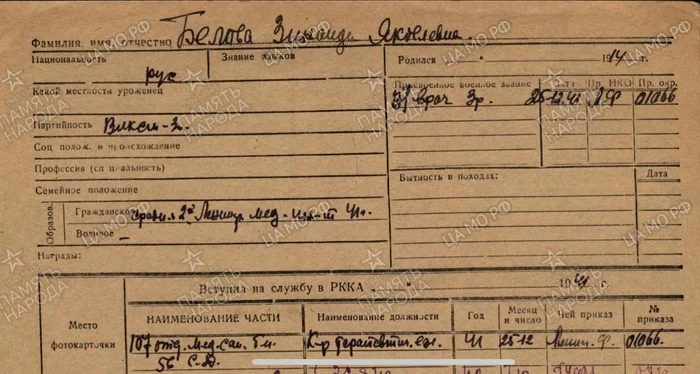 Фамилия, имя, отчество Белова Зинаида Яковлевна.
Национальность рус
Знание языков
Родился 1914 г.
Какой местности уроженец
Присвоенное военное звание Дата Пр. НКО Пр. окр.
врач 3р. 25.12.41 Л Ф 01066
Партийность Влксм-
Соц полож. и происхождение
Профессия (специальность)
Семейное положение
Бытность в походах: Дата
Образов.
Гражданское 2й Ленингр мед-ин-т 41г.
Военное —
Награды:
Вступил на службу в РККА " " 1941 г.
Место фотокарточки
НАИМЕНОВАНИЕ ЧАСТИ Наименование должности Год Месяц и число Чей приказ № приказа
107 отд. мед. сан. б-н К-р терапевтич. 41 25.12 Ленин. Ф. 01066.
56 С.Д.
ПАМЯТЬ НАРОДА
ЦАМО.РФ